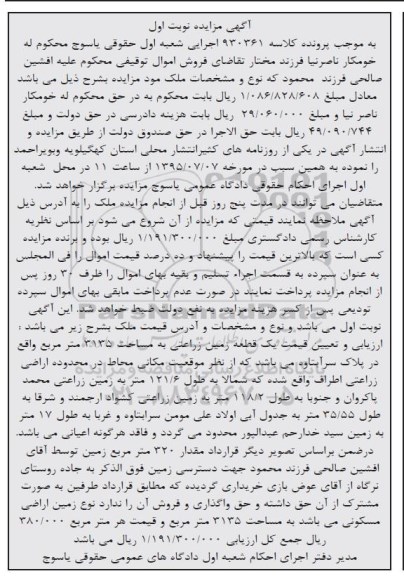 آگهی مزایده نوبت اول
به موجب پرونده کلاسه ۹۳۰۳۶۱ اجرایی شعبه اول حقوقی یاسوج محکوم له
خومکار ناصرنیا فرزند مختار تقاضای فروش اموال توقیفی محکوم علیه افشین
صالحی فرزند محمود که نوع و مشخصات ملک مود مزایده بشرح ذیل می باشد
معادل مبلغ ۱/۰۸۶/۸۲۸/۶۰۸ ریال بابت محکوم به در حق محکوم له خومکار
ناصر نیا و مبلغ ۲۹/۰۶۰/۰۰۰ ریال بابت هزینه دادرسی در حق دولت و مبلغ
۴۹/۰۹۰/۷۴۴ ریال بابت حق الاجرا در حق صندوق دولت از طریق مزایده و
انتشار آگهی در یکی از روزنامه های کثیرانتشار محلی استان کهگیلویه وبویراحمد
را نموده به همین سبب در مورخه ۱۳۹۵/۰۷/۰۷ از ساعت ۱۱ در محل شعبه
اول اجرای احکام حقوقی دادگاه عمومی یاسوج مزایده برگزار خواهد شد.
متقاضیان می توانند در مدت پنج روز قبل از انجام مزایده ملک را به آدرس ذیل
آگهی ملاحظه نمایند قیمتی که مزایده از آن شروع می شود بر اساس نظریه
کارشناس رسمی دادگستری مبلغ ۱/۱۹۱/۳۰۰/۰۰۰ ریال بوده و برنده مزایده
کسی است که بالاترین قیمت را پیشنهاد و ده درصد قیمت اموال را فی المجلس
به عنوان سپرده به قسمت اجراء تسلیم و بقیه بهای اموال را ظرف ۳۰ روز پس
از انجام مزایده پرداخت نمایند در صورت عدم پرداخت مابقی بهای اموال سپرده
تودیعی پس از کسر هزینه مزایده به نفع دولت ضبط خواهد شد. این آگهی
نوبت اول می باشد و نوع و مشخصات و آدرس قیمت ملک بشرح زیر می باشد :
ارزیابی و تعیین قیمت یک قطعه زمین زراعتی به مساحت ۳۱۳۵ متر مربع واقع
در پلاک سرآبتاوه می باشد که از نظر موقعیت مکانی محاط در محدوده اراضی
زراعتی اطراف واقع شده که شمالا به طول ۱۲۱/۶ متر به زمین زراعتی محمد
پاکروان و جنوبا به طول ۱۱۸/۲ متر به زمین زراعتی کشواد ارجمند و شرقا به
طول ۳۵/۵۵ متر به جدول آبی اولاد علی مومن سرابتاوه و غربا به طول ۱۷ متر
به زمین سید خدارحم عبدالپور محدود می گردد و فاقد هرگونه اعیانی می باشد.
درضمن براساس تصویر دیگر قرارداد مقدار ۳۲۰ متر مربع زمین توسط آقای
افشین صالحی فرزند محمود جهت دسترسی زمین فوق الذکر به جاده روستای
نرگاه از آقای عوض بازی خریداری گردیده که مطابق قرارداد طرفین به صورت
مشترک از آن حق داشته و حق واگذاری و فروش آن را ندارد نوع زمین اراضی
مسکونی می باشد به مساحت ۳۱۳۵ متر مربع و قیمت هر متر مربع ۳۸۰/۰۰۰
ریال جمع کل ارزیابی ۱/۱۹۱/۳۰۰/۰۰۰ ریال می باشد
مدیر دفتر اجرای احکام شعبه اول دادگاه های عمومی حقوقی یاسوج